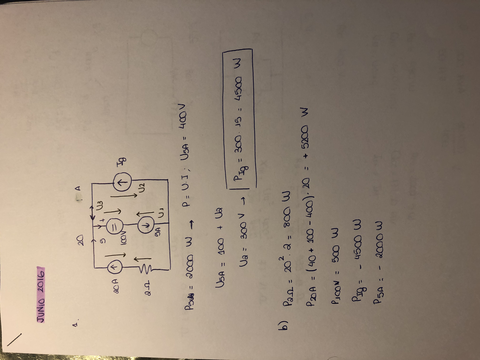 JUNIO 2016
1.
20
A
20A
2Ω
5
100V
5A
U3
U1
U2
Ig
P5A = 2000 W → P = U·I ; U5A = 400V
U5A = 100 + U2
U2 = 300 V → PIg = 300·15 = 4500 W
b) P2Ω = 20² · 2 = 800 W
P20A = (40 + 100 - 400) · 20 = + 5200 W
P100V = 500 W
PIg = - 4500 W
P5A = - 2000 W